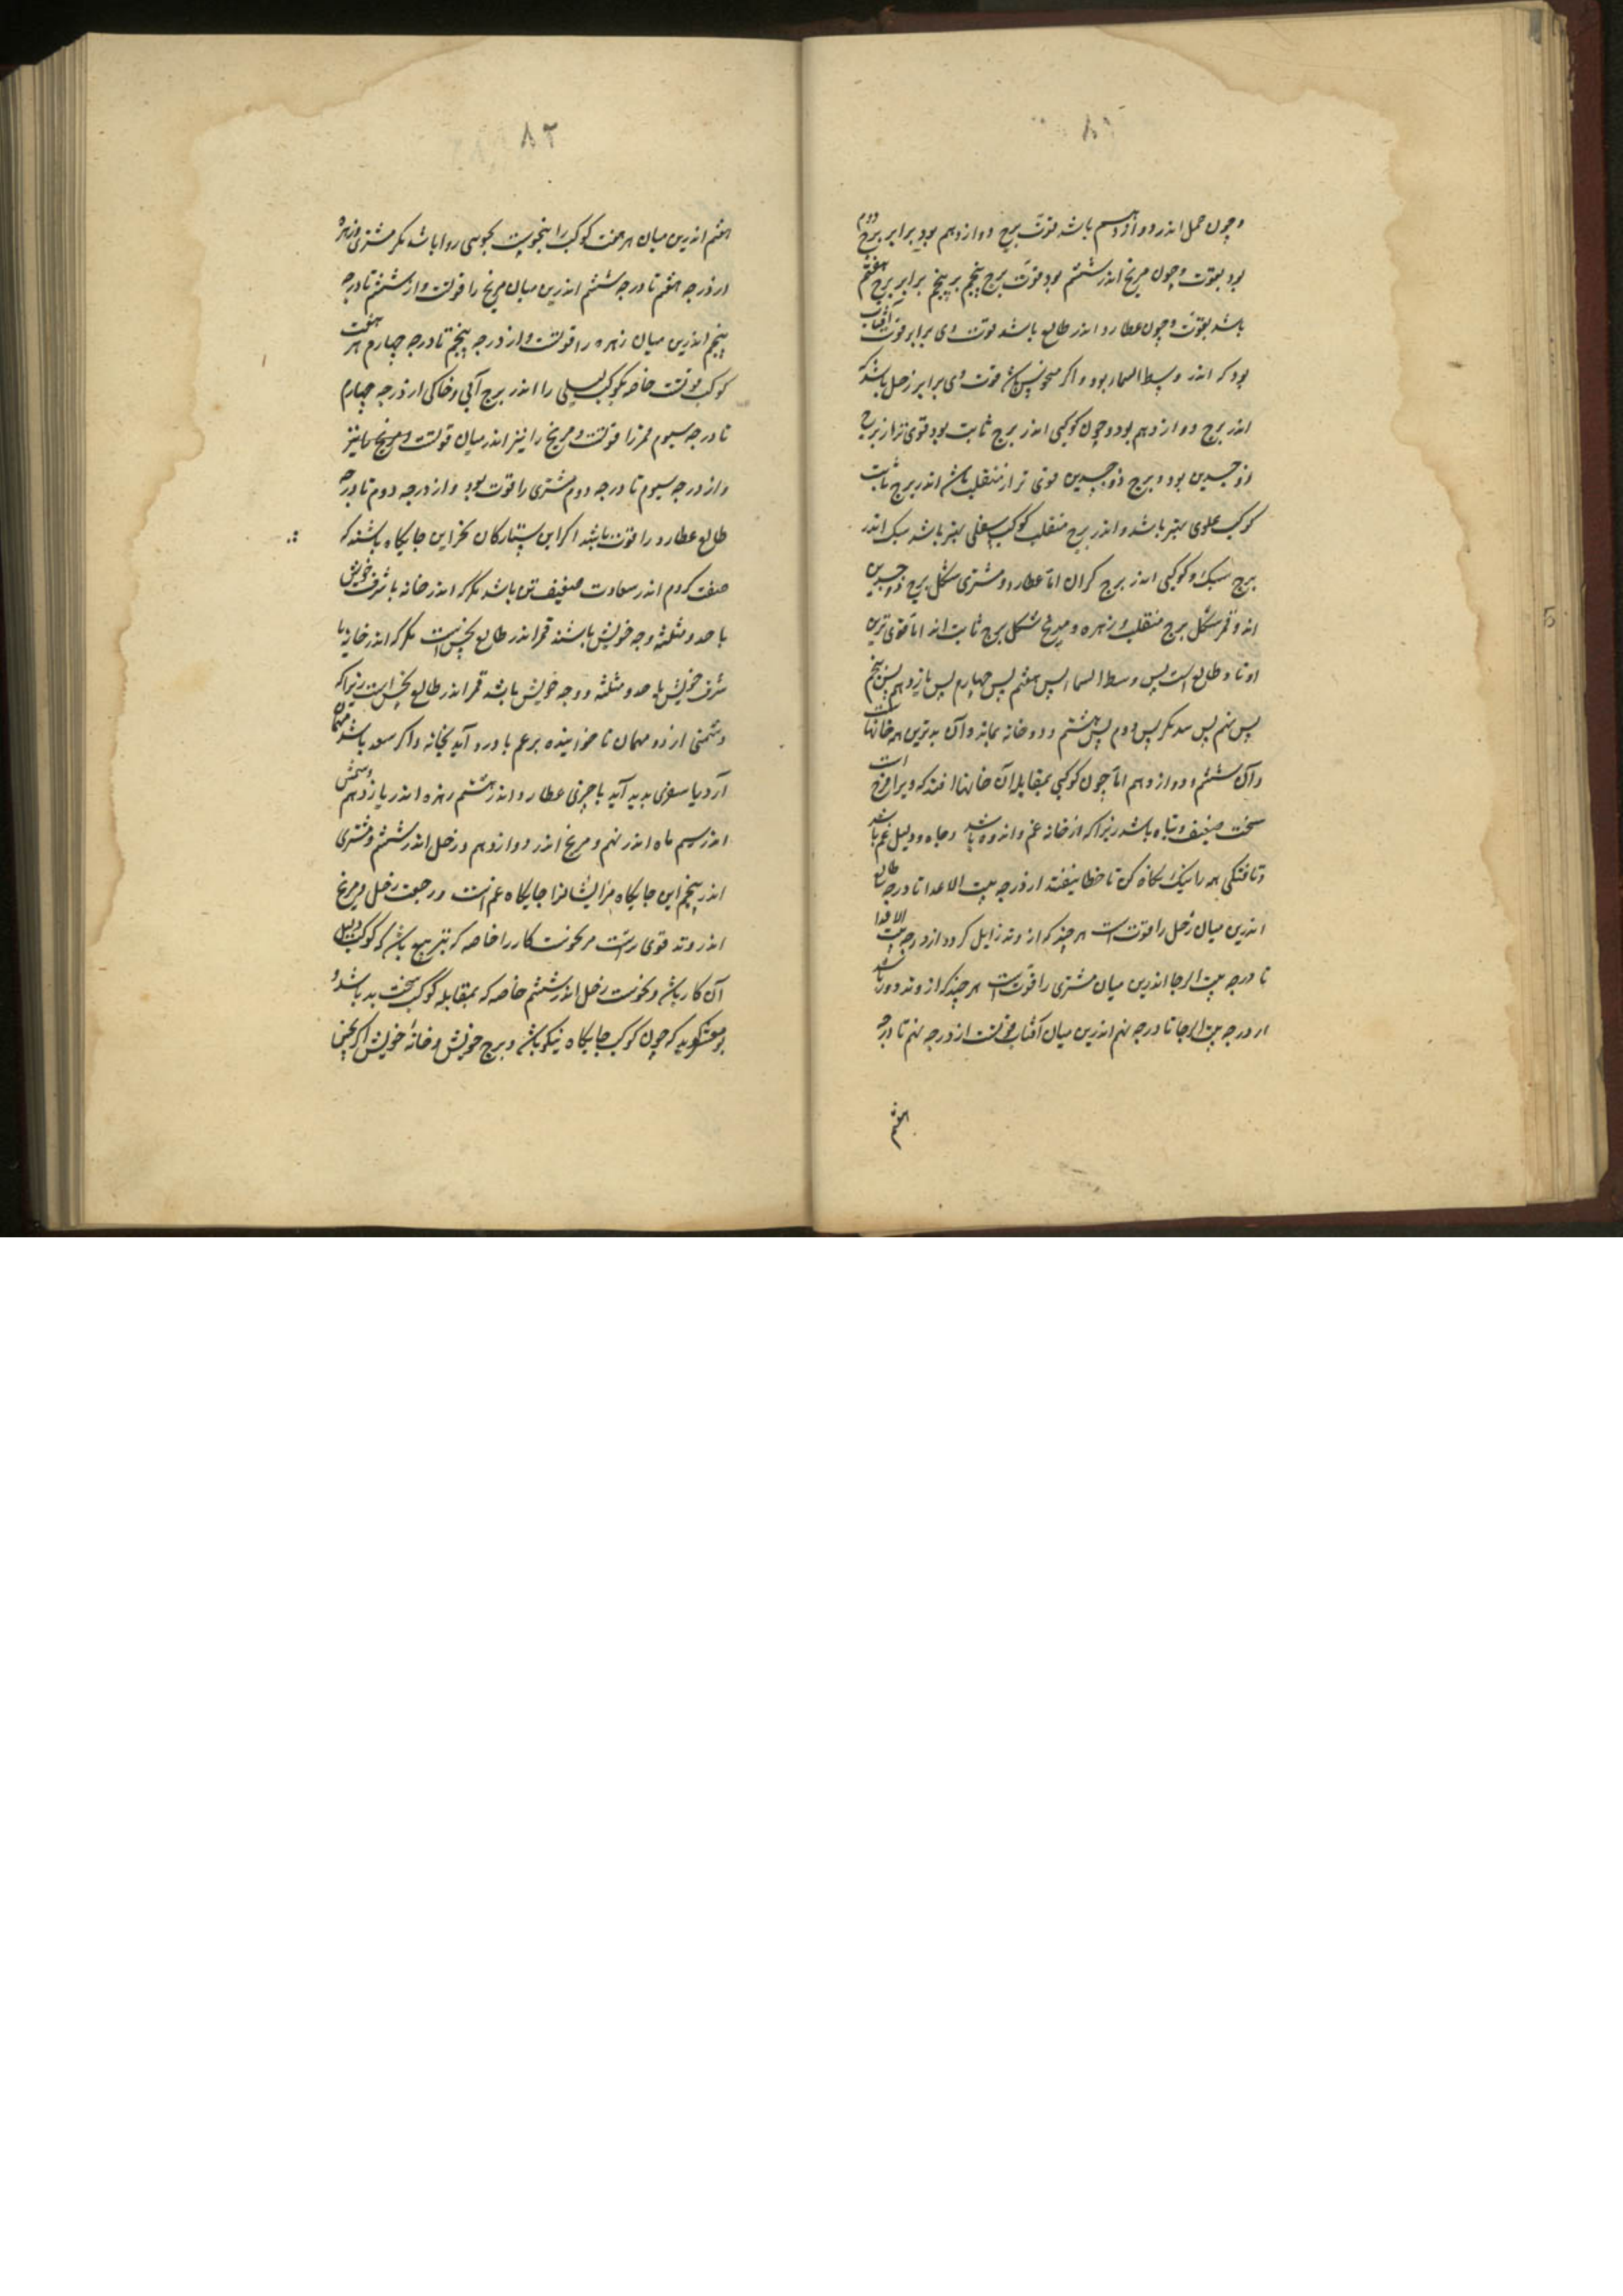 ۸۱
و چون حمل اندر دوازدهم باشد قوت برج دوازدهم بود برابر برج دوم
بود بقوت و چون مریخ اندر ششم بود قوت برج پنجم بر پنجم برابر برج هفتم
باشد بقوت و چون عطارد اندر طالع باشد قوت وی برابر قوت آفتاب
بود که اندر وسط السما بود و اگر منحوس باشد قوت وی برابر زحل باشد که
اندر برج دوازدهم بود و چون کوکبی اندر برج ثابت بود قوی تر از برج
ذو جسدین بود و برج ذو جسدین قوی تر از منقلب باشد اندر برج ثابت
کوکب علوی بهتر باشد و اندر برج منقلب کوکب سفلی بهتر باشد سبک اندر
برج سبک و کوکبی اندر برج کران اما عطارد و مشتری شکل برج ذو جسدین
اند و قمر شکل برج منقلب و زهره و مریخ شکل برج ثابت اند اما قوی ترین
اوتاد طالع است پس وسط السما پس هفتم پس چهارم پس یازدهم پس پنجم
پس نهم پس سدیکر پس دوم پس هشتم و دو خانه بماند و آن بدترین همه خانها است
و آن ششم و دوازدهم اما چون کوکبی بمقابله آن خانها افتد که ویرا فرح است
سخت ضعیف و تباه باشد زیرا که از خانه غم و اندوه باشد و جاه و دلیل غم باشد
و تافتکی همه را نیک نکاه کن تا خطا نیفتد از درجه بیت الاعدا تا درجه طالع
اندرین میان زحل را قوت است هر چند که از وتد زایل کردد از درجه بیت الاعدا
تا درجه بیت الرجا اندرین میان مشتری را قوت است هر چند که از وتد دور باشد
از درجه بیت الرجا تا درجه نهم اندرین میان آفتاب قویست از درجه نهم تا درجه
هفتم
۸۲
هفتم اندرین میان هر هفت کوکب را بنحوست روا باشد مکر مشتری و زهره
از درجه هفتم تا درجه ششم اندرین میان مریخ را قوتست و از ششم تا درجه
پنجم اندرین میان زهره را قوتست و از درجه پنجم تا درجه چهارم هر هفت
کوکب قوتست خاصه کوکب لیلی را اندر برج آبی و خاکی از درجه چهارم
تا درجه سیوم قمر را قوتست و مریخ را نیز اندر میان قوتست و مریخ را نیز
و از درجه سیوم تا درجه دوم مشتری را قوت بود و از درجه دوم تا درجه
طالع عطارد را قوت باشد اگر این ستارکان بجز این جایکاه باشند که
صفت کردم اندر سعادت ضعیف تر باشد مکر که اندر خانه یا شرف خویش
یا حد و مثلثه و وجه خویش باشند قمر اندر طالع نحس است مکر که اندر خانه یا
شرف خویش یا حد و مثلثه و وجه خویش باشد قمر اندر طالع نحس است زیرا که
دشمنی آرد و مهمان ناخوانده بر غم یا درد آید بخانه و اگر سعد باشد مهمان
آرد یا سفری پدید آید یا چیزی عطارد اندر هشتم زهره اندر یازدهم و شمس
اندر سیم ماه اندر نهم و مریخ اندر دوازدهم و زحل اندر ششم و مشتری
اندر پنجم این جایکاه مر ایشانرا جایکاه غم است و رجعت زحل و مریخ
اندر وتد قوی است مر نحوست کار را خاصه که بتربیع باشد که کوکب دلیل
آن کار باشد و نحوست زحل اندر ششم خاصه که بمقابله کوکب سخت بد باشد و
بومعشر کوید که چون کوکب جایکاه نیکو باشد و برج خویش و خانه خویش اکر نحس